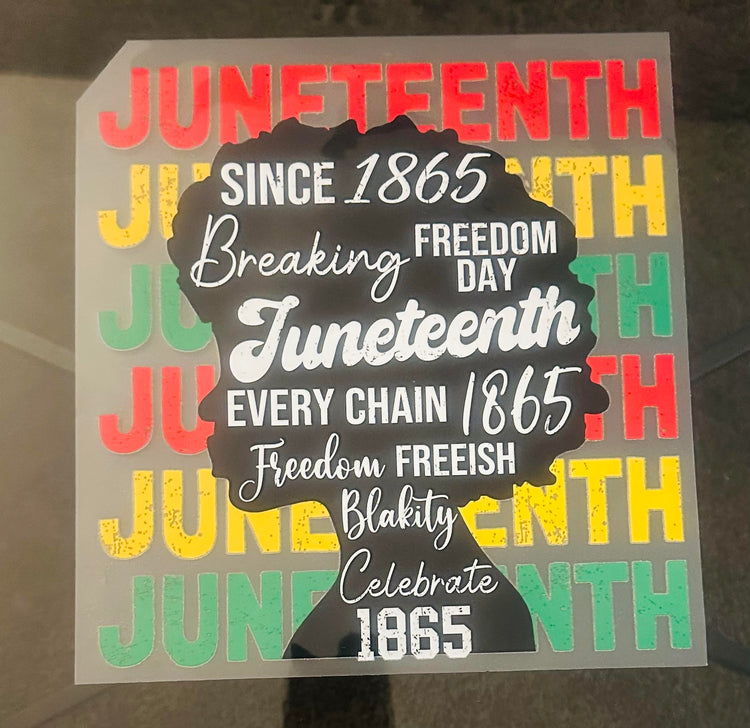 JUNETEENTH
SINCE 1865
JU NTH
Breaking FREEDOM DAY
JU TH
Juneteenth
JU TH
EVERY CHAIN 1865
Freedom FREEISH
JUNE ENTH
Blakity
Celebrate
JUN NTH
1865